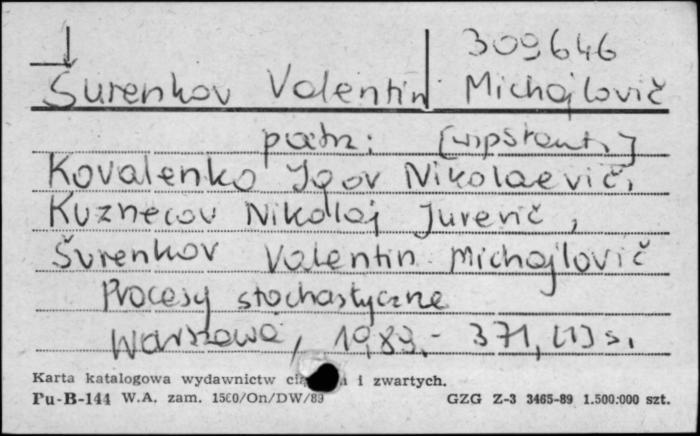 309646
Šurenkov Valentin Michajlovič
patrz: [współaut.]
Kovalenko Igor Nikolaevič,
Kuznecov Nikolaj Jurevič,
Šurenkov Valentin Michajlovič
Procesy stochastyczne
Warszawa, 1989.- 371, [1] s.
Karta katalogowa wydawnictw i zwartych.
Pu-B-144 W.A. zam. 1580/On/DW/89 GZG Z-3 3465-89 1.500.000 szt.